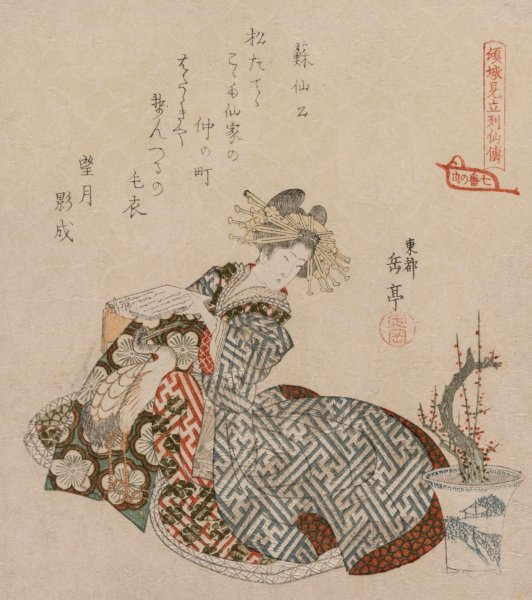 傾城見立列仙傳
七番の内
蘇仙公
松たてゝ
こゝも仙家の
仲の町
はたらきや
夢んつるの
毛衣
望月
影成
東都
岳亭